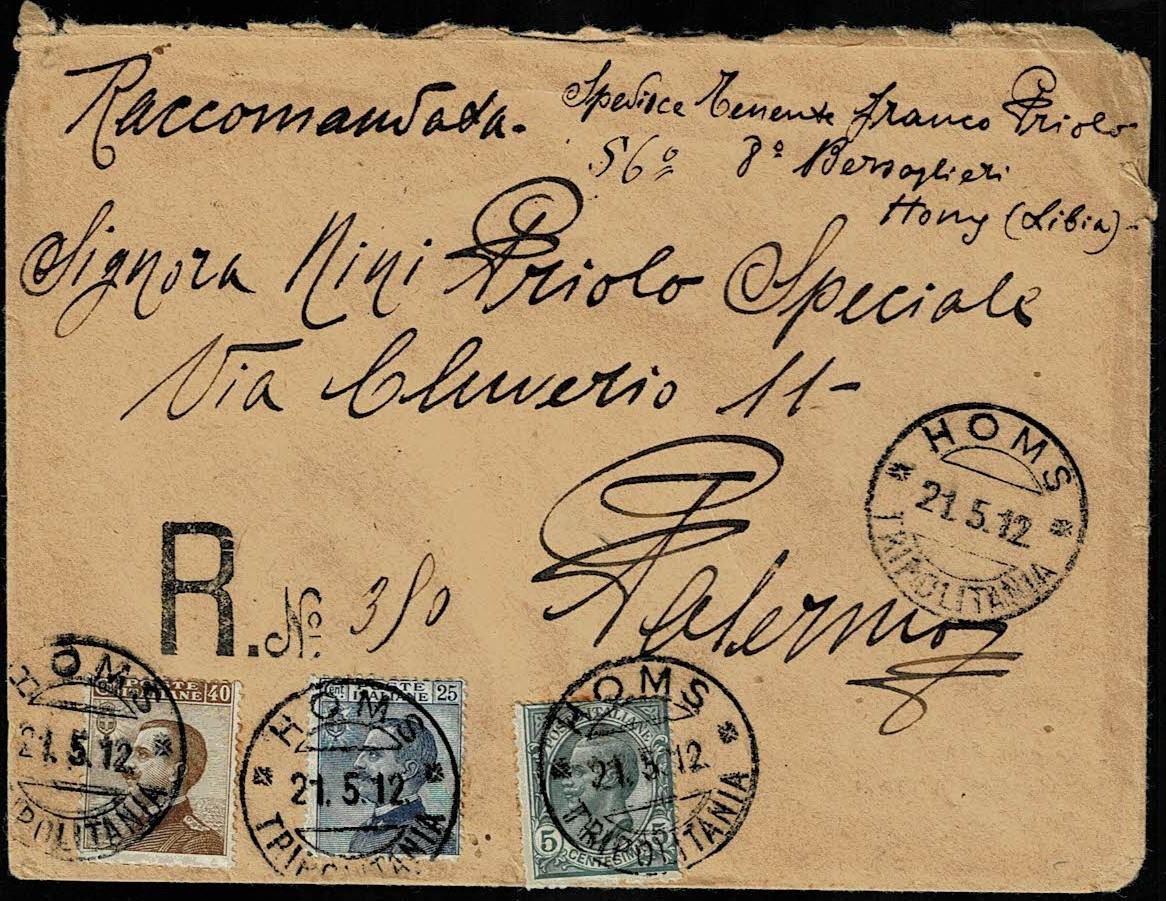 Raccomandada.
Spedisce Tenente Franco Priolo
56º 8º Bersaglieri
Homs (Libia)-
Signora Nini Priolo Speciale
Via Cluverio 11-
Palermo
HOMS
21.5.12
TRIPOLITANIA
R. Nº 350
HOMS
21.5.12
TRIPOLITANIA
POSTE ITALIANE 40
HOMS
21.5.12
TRIPOLITANIA
Cent POSTE ITALIANE 25
HOMS
21.5.12
TRIPOLITANIA
POSTE ITALIANE
5 CENTESIMI 5